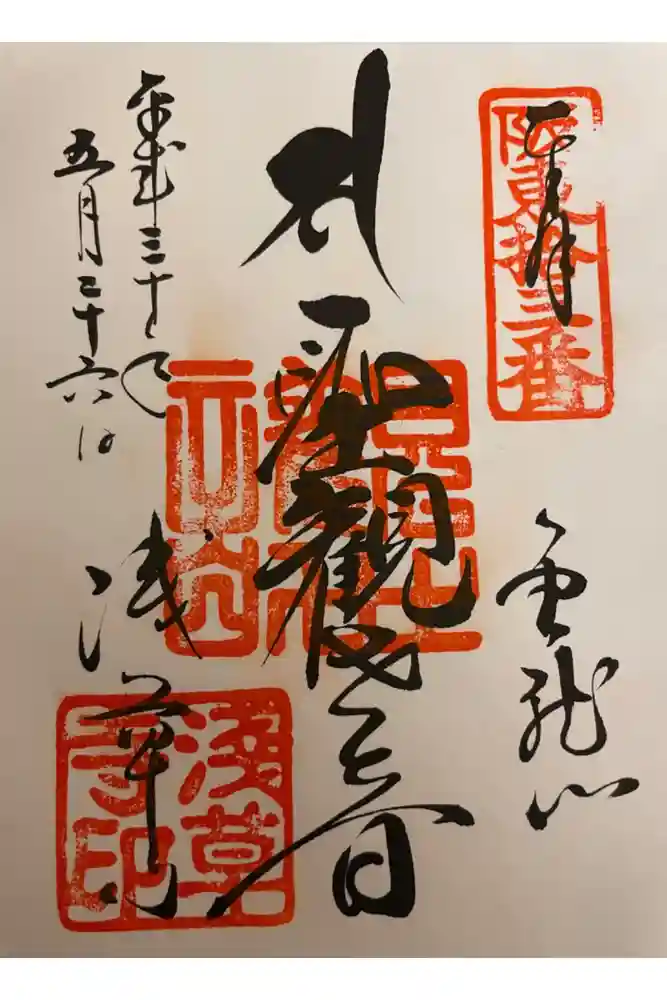 奉拝
阪東拾三番
金龍山
聖観世音
平成三十年
五月二十六日
浅草寺
淺草寺印